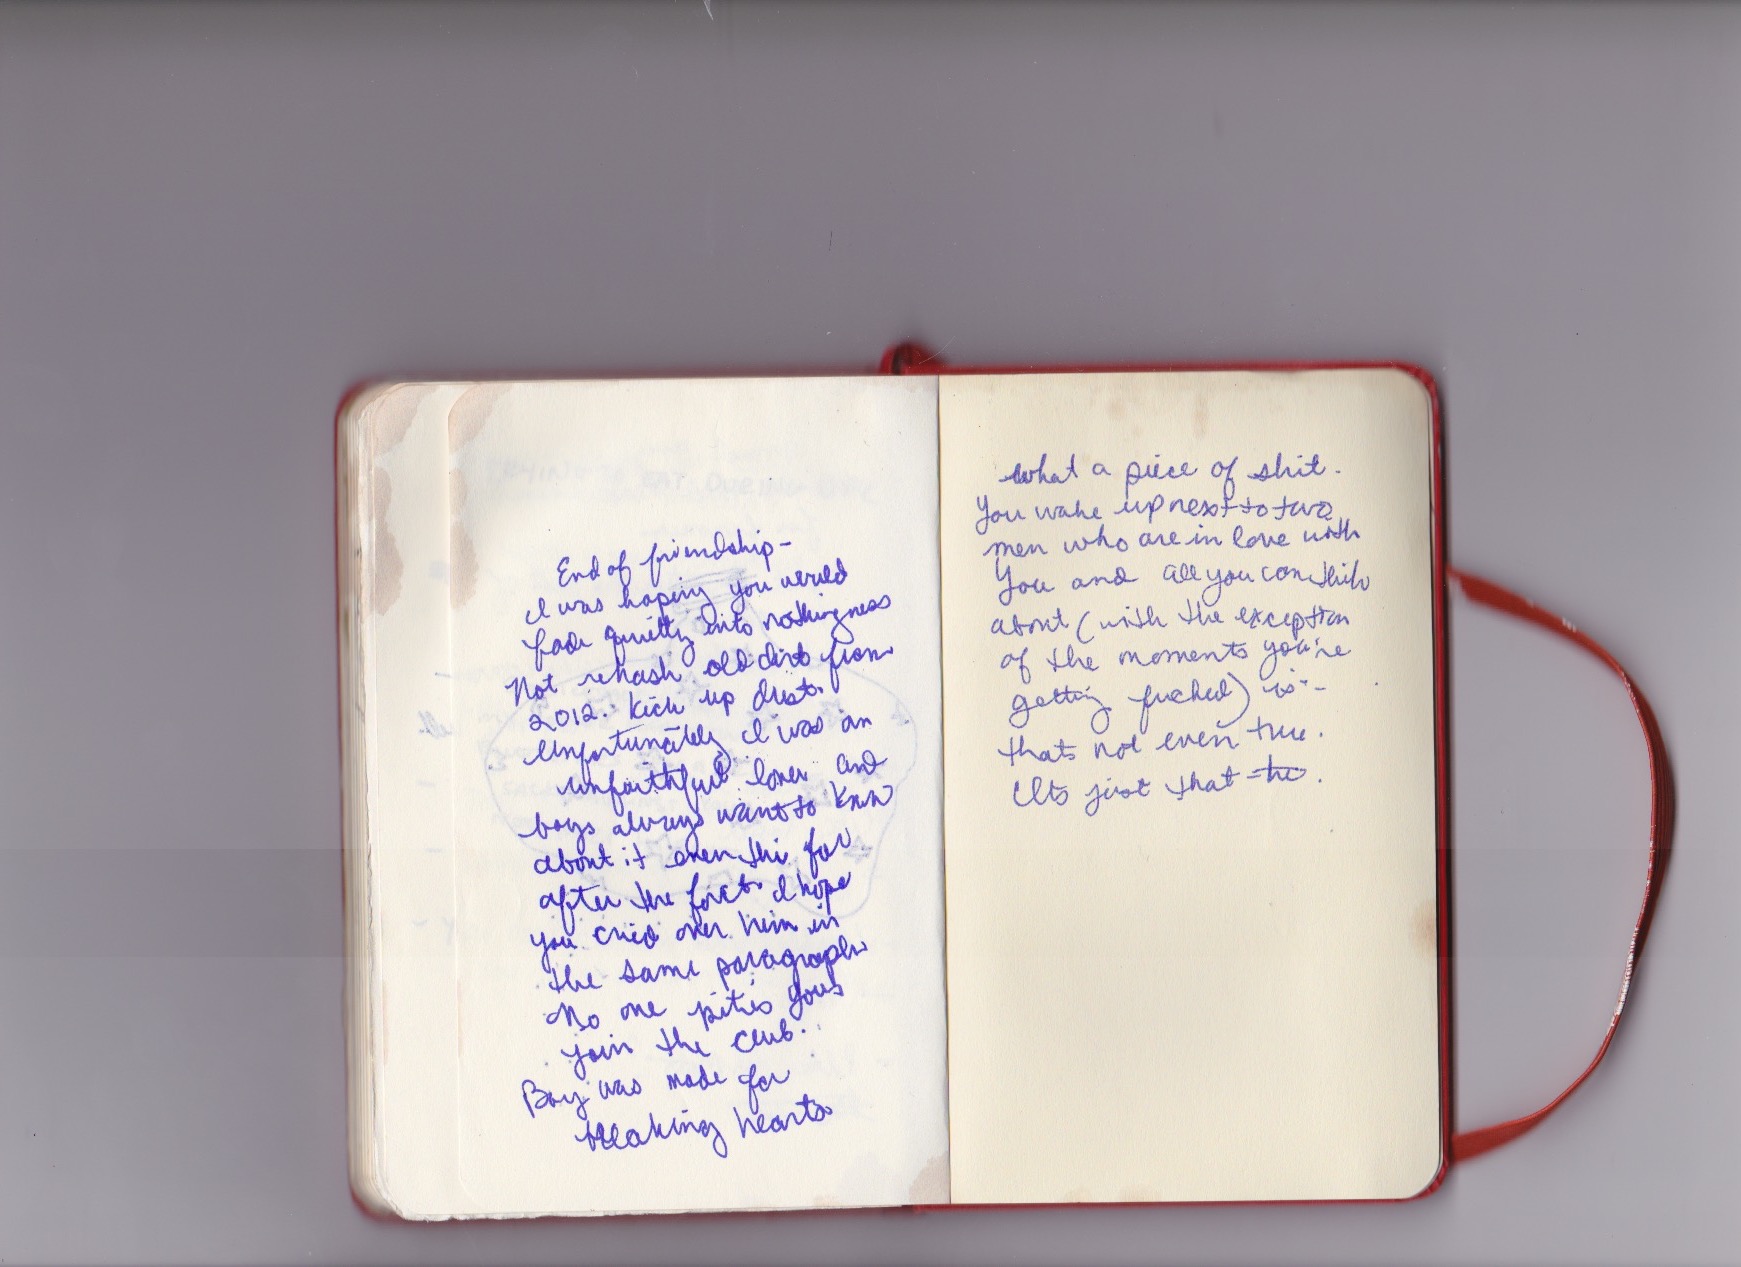 End of friendship-
I was hoping you would
fade quietly into nothingness
Not rehash old dirt from
2012. Kick up dust.
Unfortunately I was an
unfaithful lover and
boys always want to know
about it even this far
after the fact. I hope
you cried over him in
the same paragraph
No one pities you
join the club.
Boy was made for
breaking hearts
What a piece of shit.
You wake up next to two
men who are in love with
You and all you can think
about (with the exception
of the moments you're
getting fucked) is -
thats not even true.
Its just that